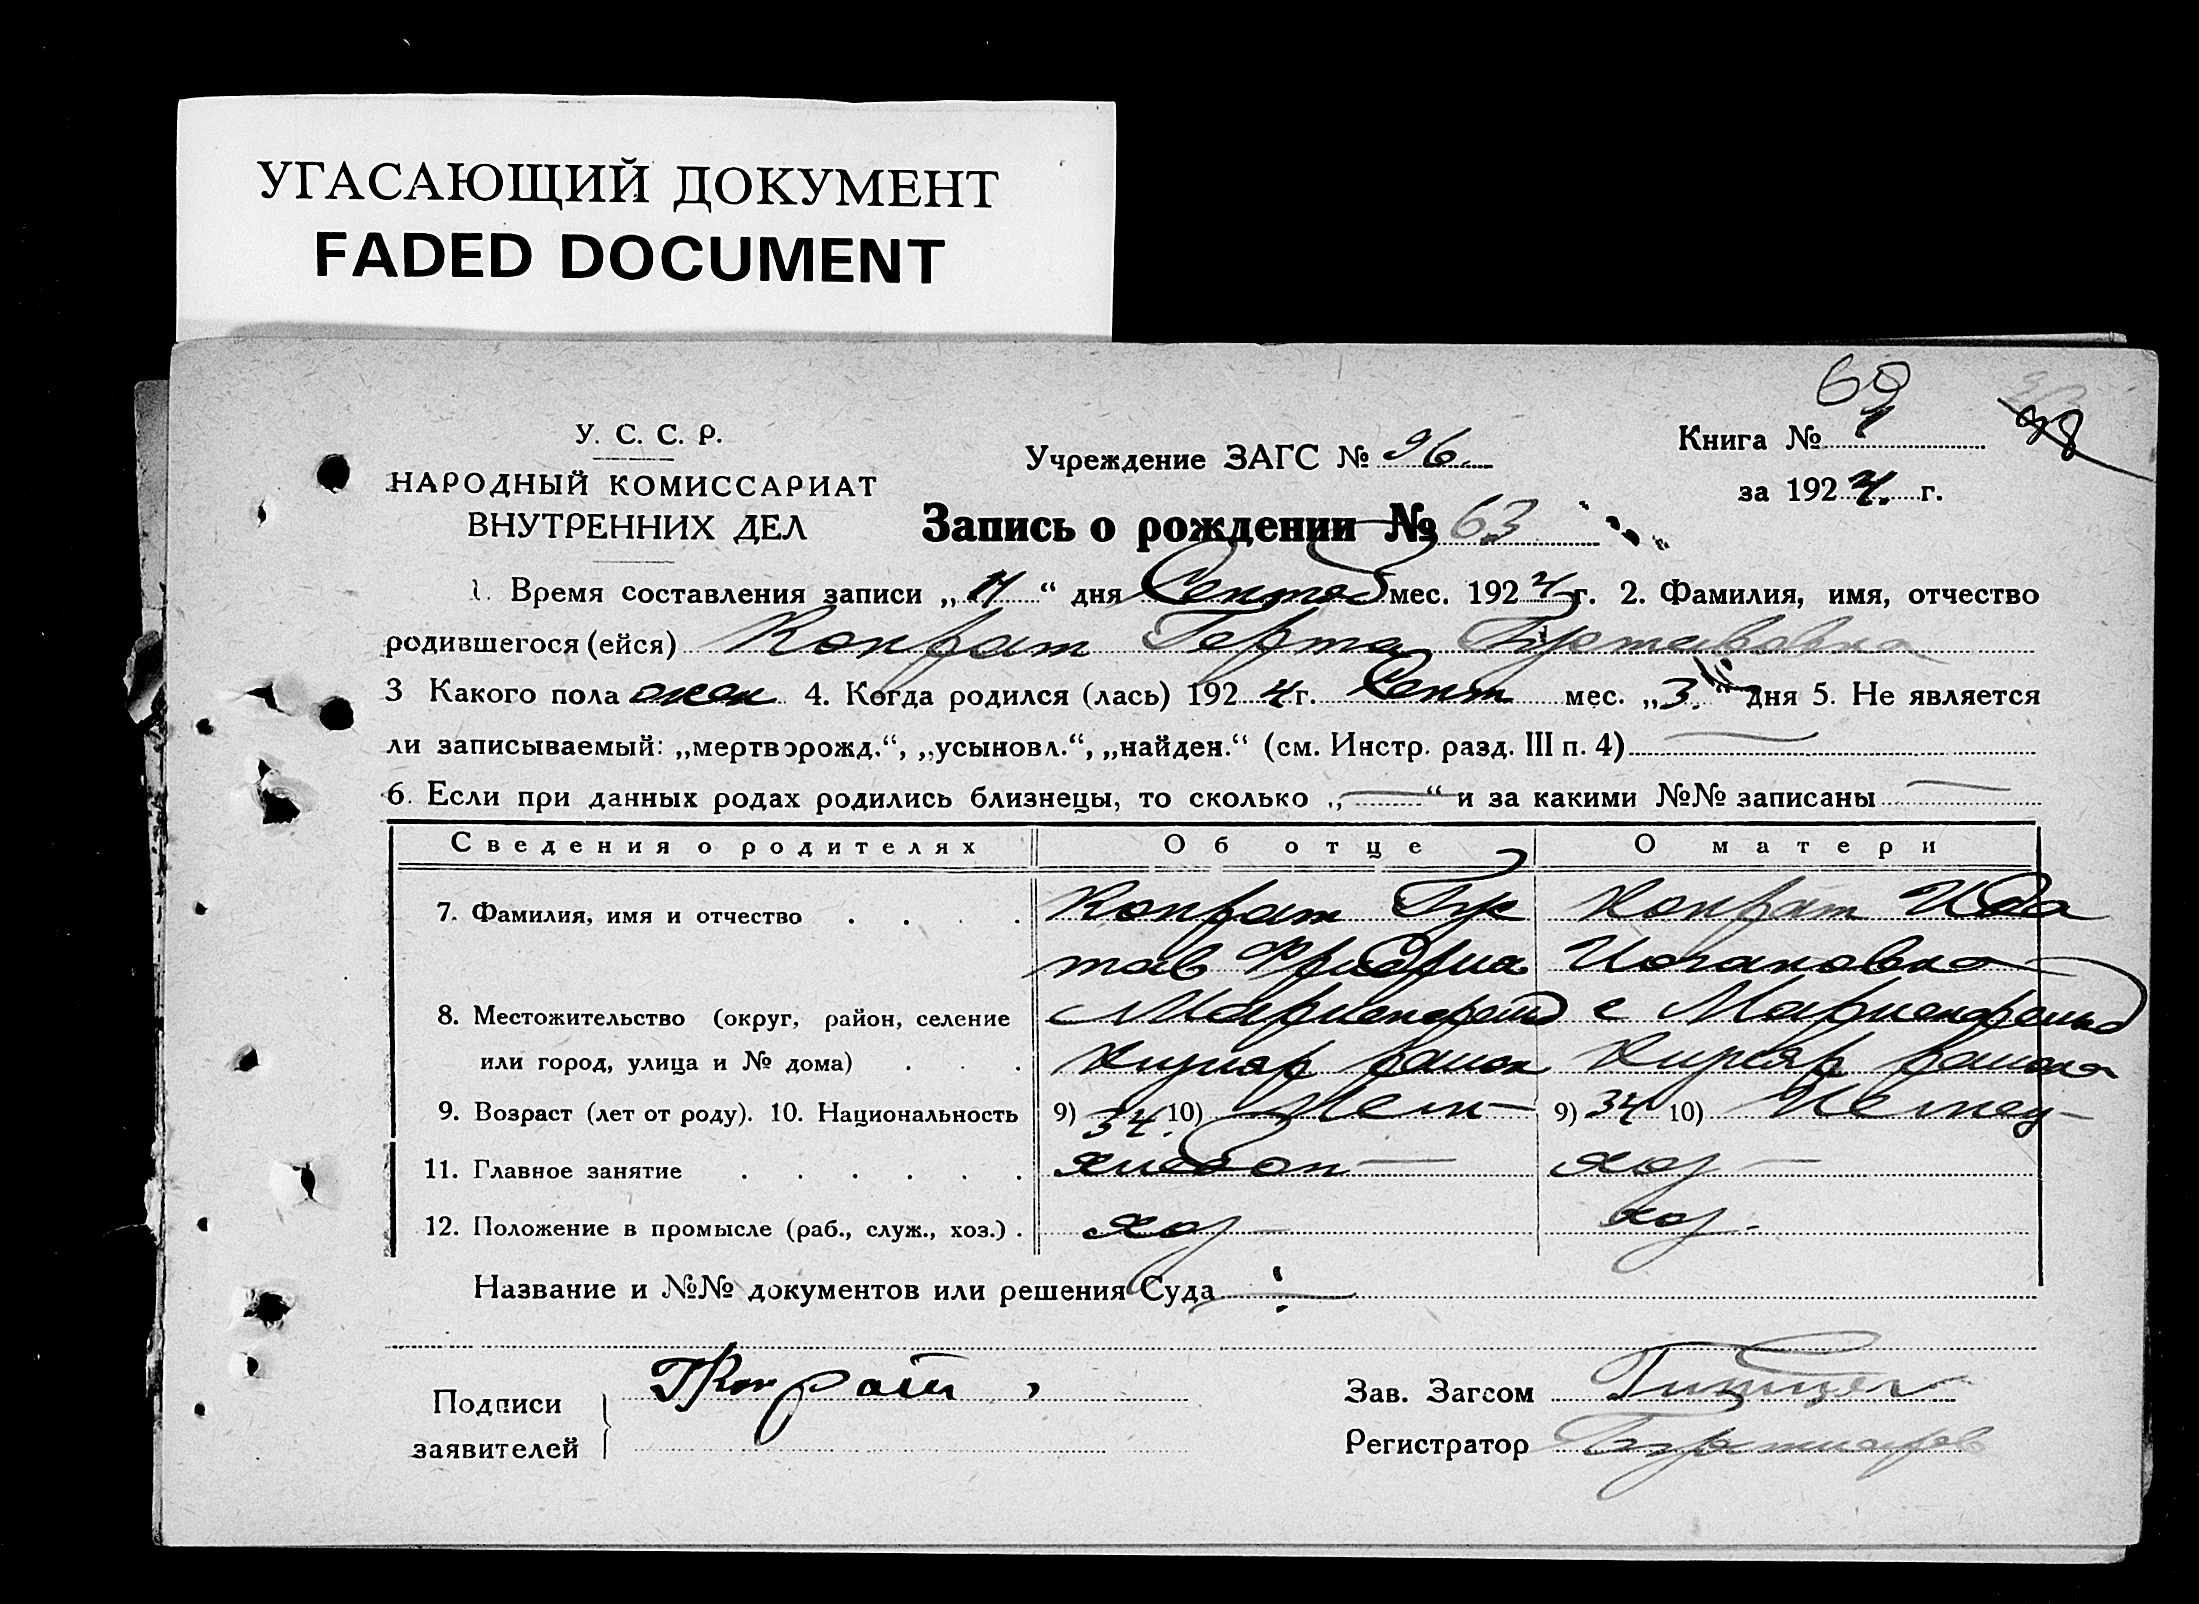 УГАСАЮЩИЙ ДОКУМЕНТ
FADED DOCUMENT
60
98
У. С. С. Р.
НАРОДНЫЙ КОМИССАРИАТ
ВНУТРЕННИХ ДЕЛ
Учреждение ЗАГС № 96
Книга № 1
за 1924 г.
Запись о рождении № 63
1. Время составления записи „4“ дня Сентяб мес. 1924 г. 2. Фамилия, имя, отчество
родившегося (ейся) Конрат Герта Густавовна
3 Какого пола жен 4. Когда родился (лась) 1924 г. Сент мес. „3“ дня 5. Не является
ли записываемый: „мертворожд.“, „усыновл.“, „найден.“ (см. Инстр. разд. III п. 4) —
6. Если при данных родах родились близнецы, то сколько „—“ и за какими №№ записаны —
Сведения о родителях Об отце О матери
7. Фамилия, имя и отчество . . . . Конрат Гус Конрат Ида
тав Фридриха Иогановна
8. Местожительство (округ, район, селение с Мариенфельд с Мариенфельд
или город, улица и № дома) . . . район района
9. Возраст (лет от роду). 10. Национальность 9) 34. 10) Нем— 9) 34 10) Немец—
11. Главное занятие . . . . . . хлебоп— хоз—
12. Положение в промысле (раб., служ., хоз.) . хоз— хоз.
Название и №№ документов или решения Суда —
Подписи
заявителей
Г Конрат
Зав. Загсом
Регистратор